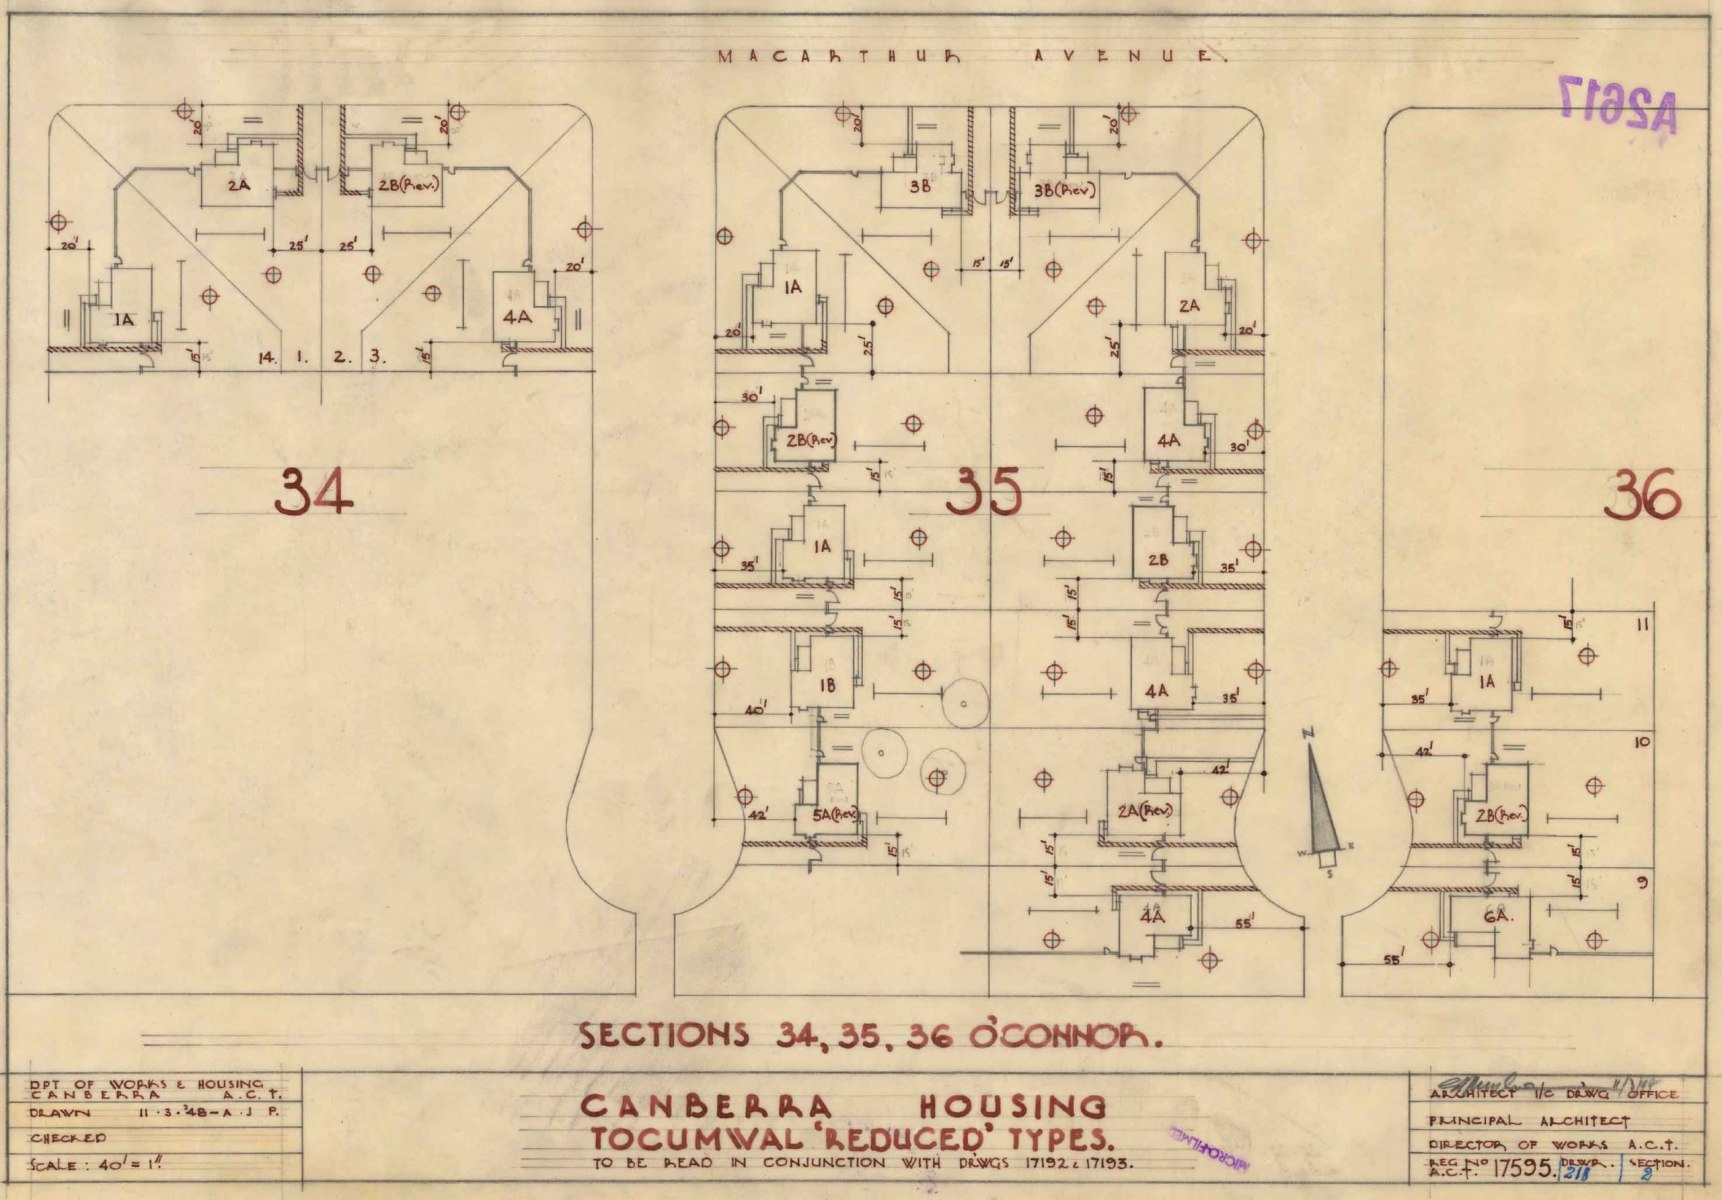 MACARTHUR AVENUE.
A2617
20'
20'
2A
2B(Rev.)
20'
25'
25'
20'
1A
4A
15'
14.
1.
2.
3.
15'
34
20'
20'
3B
3B(Rev)
15'
15'
1A
2A
20'
25'
25'
20'
30'
2B(Rev)
4A
30'
15'
15'
35
1A
2B
35'
35'
15'
15'
15'
15'
1B
4A
40'
35'
42'
5A(Rev.)
2A(Rev.)
42'
15'
15'
15'
4A
55'
N
W
E
S
36
15'
11
1A
35'
10
42'
2B(Rev.)
15'
15'
9
6A.
55'
SECTIONS 34, 35, 36 O'CONNOR.
DPT OF WORKS & HOUSING
CANBERRA A.C.T.
DRAWN 11·3·'48-A.J P.
CHECKED
SCALE: 40' = 1".
CANBERRA HOUSING
TOCUMWAL 'REDUCED' TYPES.
TO BE READ IN CONJUNCTION WITH DRWGS 17192 & 17193.
MICROFILMED
ARCHITECT I/C DRWG OFFICE
PRINCIPAL ARCHITECT
DIRECTOR OF WORKS A.C.T.
REG NO A.C.T. 17595. DRWR. 218 SECTION. 2